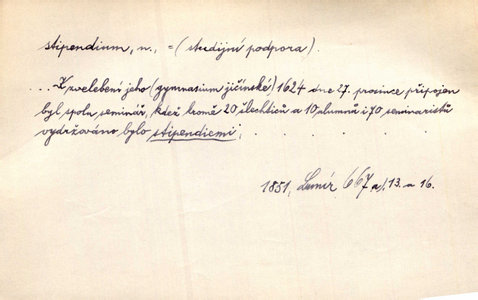 stipendium, n., = (studijní podpora).
... K zvelebení jeho (gymnasium jičínské) 1624 dne 27. prosince připojen
byl spolu seminář, kdež kromě 20 šlechticů a 10 alumnů i 70 seminaristů
vydržováno bylo stipendiemi, . . . . . . .
1851, Lumír 667 a), 13. a 16.